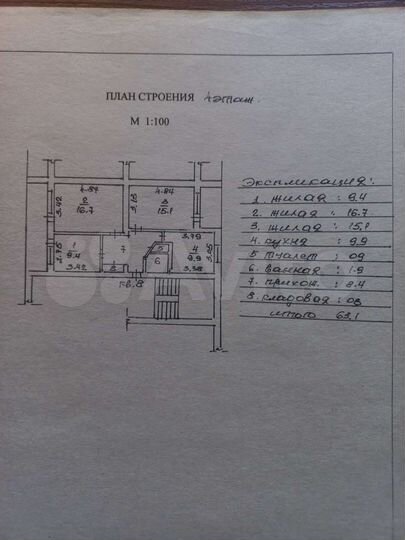 ПЛАН СТРОЕНИЯ 4 этаж.
М 1:100
4.89
4.84
3.42
2
16.7
3.15
3
15.1
3.79
2.75
1
9.4
7
5
6
4
9.9
3.42
8
3.38
кв.8
Экспликация:
1. жилая : 9.4
2. жилая : 16.7
3. жилая : 15.1
4. кухня : 9.9
5 туалет : 09
6 ванная : 1.9
7. прихож. : 8.4
8. кладовая : 08
итого 63.1
Avito